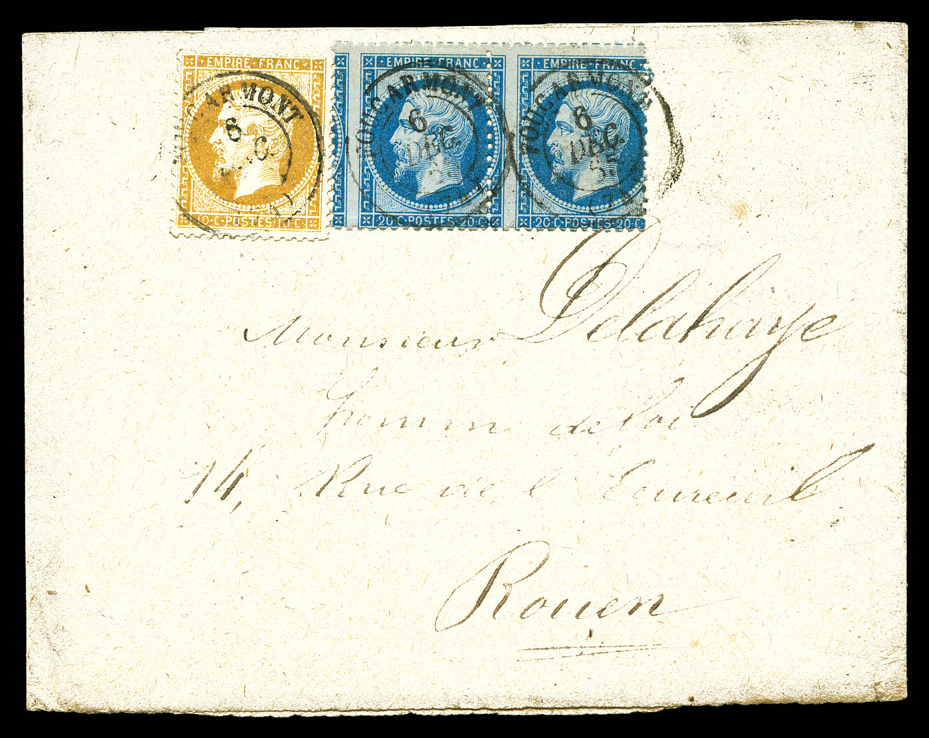 EMPIRE FRANC
EMPIRE FRANC
EMPIRE FRANC
FOUCARMONT
6
DEC
FOUCARMONT
6
DEC.
FOUCARMONT
6
DEC.
65
10 C POSTES 10 C
20 C POSTES 20 C
20 C POSTES 20 C
Monsieur Delahaye
homme de loi
14, Rue de l'Ecureuil
Rouen